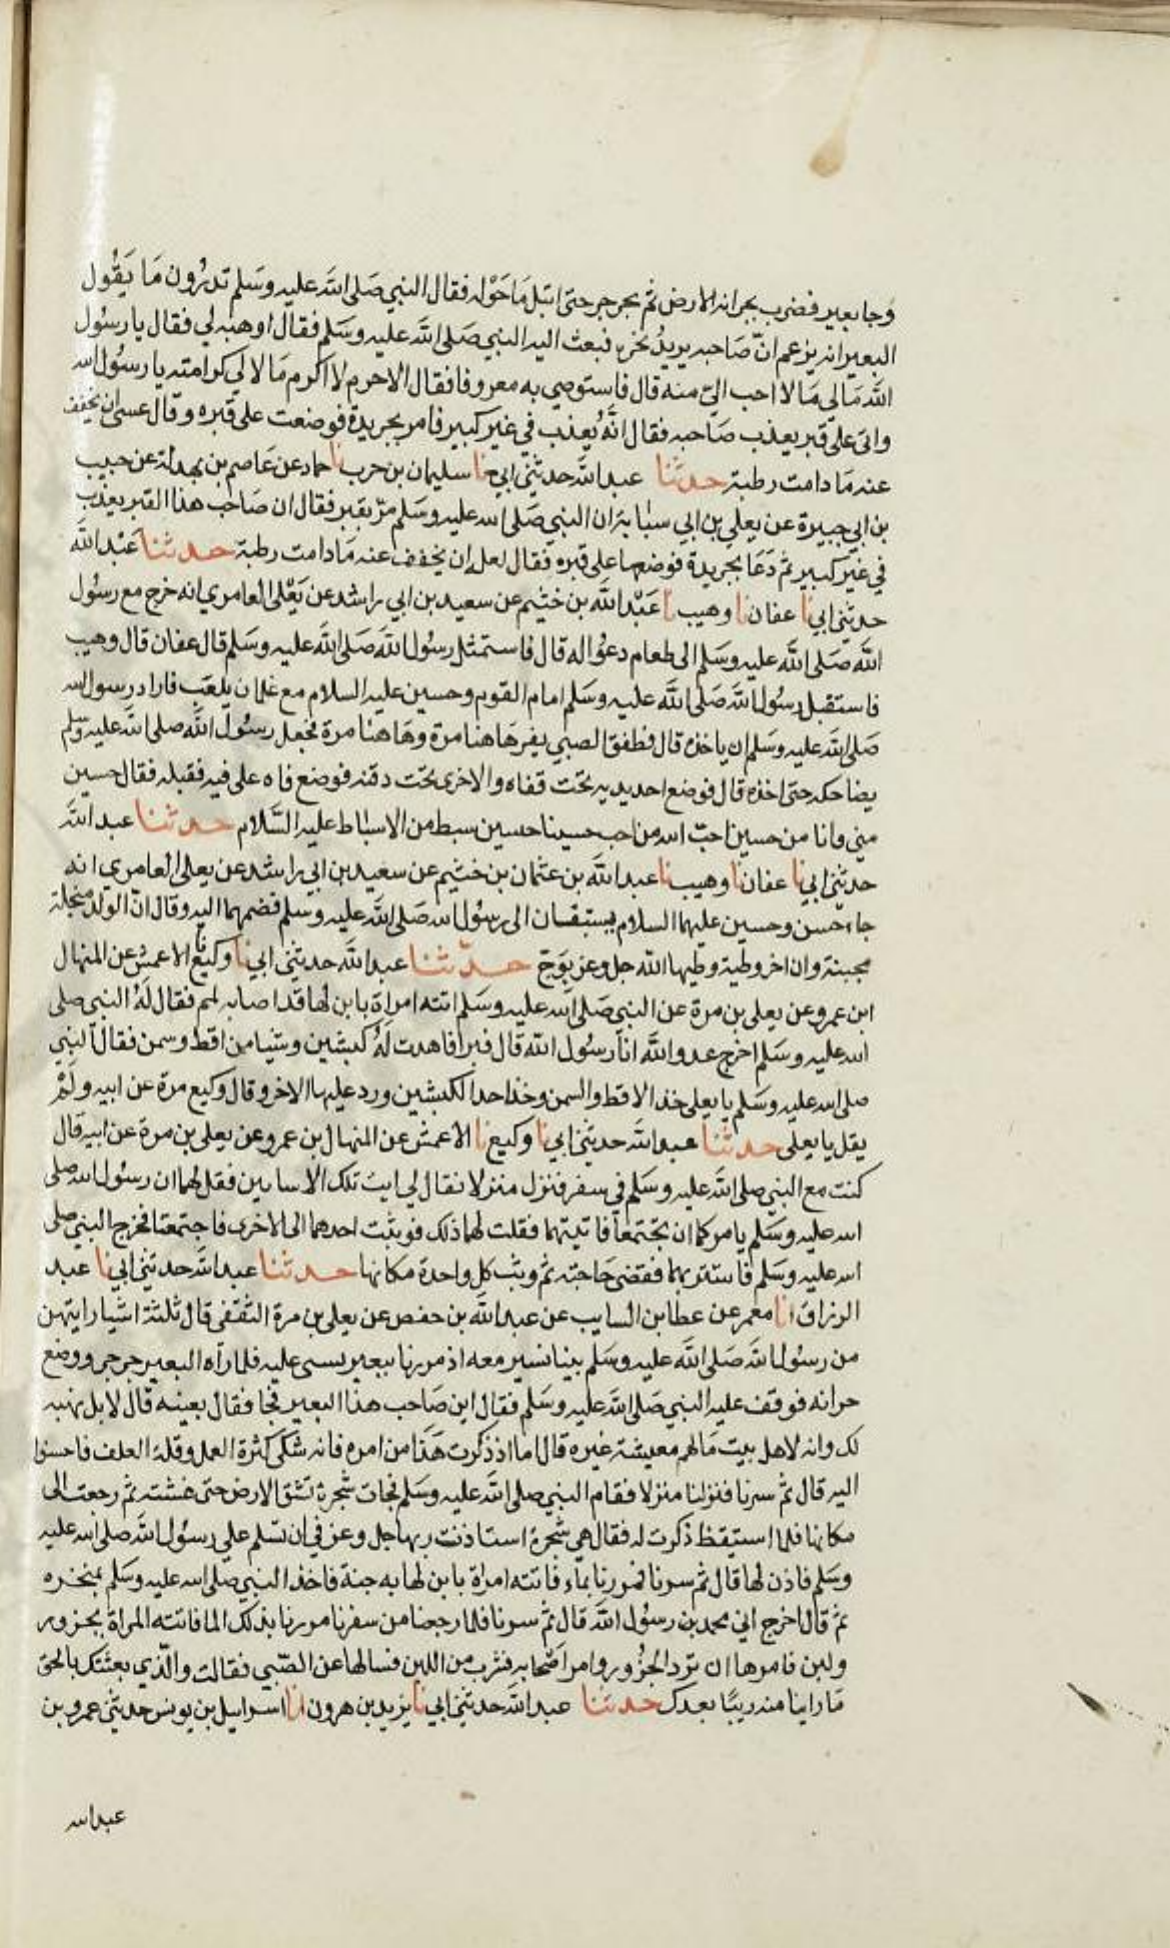 وجا بعير فضرب بجرانه الارض ثم جرجر حتى ابتل ما حوله فقال النبي صلى الله عليه وسلم تدرون ما يقول
البعير انه يزعم ان صاحبه يريد نحره فبعث اليه النبي صلى الله عليه وسلم فقال اوهبه لي فقال يا رسول
الله مالي مال احب الي منه قال فاستوصي به معروفا فقال لاجرم لا اكرم مالا لي كرامته يا رسول الله
واتى على قبر يعذب صاحبه فقال انه يعذب في غير كبير فامر بجريدة فوضعت على قبره وقال عسى ان يخفف
عنه ما دامت رطبة حدثنا عبد الله حدثني ابي نا سليمان بن حرب نا حماد عن عاصم بن بهدلة عن حبيب
بن ابي جبيرة عن يعلى بن ابي سبابة ان النبي صلى الله عليه وسلم مر بقبر فقال ان صاحب هذا القبر يعذب
في غير كبير ثم دعا بجريدة فوضعها على قبره فقال لعله ان يخفف عنه ما دامت رطبة حدثنا عبد الله
حدثني ابي نا عفان نا وهيب نا عبد الله بن خثيم عن سعيد بن ابي راشد عن يعلى العامري انه خرج مع رسول
الله صلى الله عليه وسلم الى طعام دعوا له قال فاستمثل رسول الله صلى الله عليه وسلم قال عفان قال وهيب
فاستقبل رسول الله صلى الله عليه وسلم امام القوم وحسين عليه السلام مع غلمان يلعب فاراد رسول الله
صلى الله عليه وسلم ان ياخذه قال فطفق الصبي يفر هاهنا مرة وهاهنا مرة فجعل رسول الله صلى الله عليه وسلم
يضاحكه حتى اخذه قال فوضع احدى يديه تحت قفاه والاخرى تحت ذقنه فوضع فاه على فيه فقبله فقال حسين
مني وانا من حسين احب الله من احب حسينا حسين سبط من الاسباط عليه السلام حدثنا عبد الله
حدثني ابي نا عفان نا وهيب نا عبد الله بن عثمان بن خثيم عن سعيد بن ابي راشد عن يعلى العامري انه
جاء حسن وحسين عليهما السلام يستبقان الى رسول الله صلى الله عليه وسلم فضمهما اليه وقال ان الولد مبخلة
مجبنة وان اخر وطية وطيها الله جل وعز بوج حدثنا عبد الله حدثني ابي نا وكيع نا الاعمش عن المنهال
ابن عمرو عن يعلى بن مرة عن النبي صلى الله عليه وسلم اتته امراة بابن لها قد اصابه لمم فقال له النبي صلى
الله عليه وسلم اخرج عدو الله انا رسول الله قال فبرا فاهدت له كبشين وشيا من اقط وسمن فقال النبي
صلى الله عليه وسلم يا يعلى خذ الاقط والسمن وخذ احد الكبشين ورد عليها الاخر وقال وكيع مرة عن ابيه ولم
يقل يا يعلى حدثنا عبد الله حدثني ابي نا وكيع نا الاعمش عن المنهال بن عمرو عن يعلى بن مرة عن ابيه قال
كنت مع النبي صلى الله عليه وسلم في سفر فنزل منزلا فقال لي ايت تلك الاساتين فقل لهما ان رسول الله صلى
الله عليه وسلم يامركما ان تجتمعا فاتيتهما فقلت لهما ذلك فوثبت احدهما الى الاخرى فاجتمعتا فخرج النبي صلى
الله عليه وسلم فاستتر بهما فقضى حاجته ثم وثب كل واحدة مكانها حدثنا عبد الله حدثني ابي نا عبد
الرزاق انا معمر عن عطا بن السايب عن عبد الله بن حفص عن يعلى بن مرة الثقفي قال ثلثة اشيا رايتهن
من رسول الله صلى الله عليه وسلم بينا نسير معه اذ مررنا ببعير يسنى عليه فلما رآه البعير جرجر ووضع
جرانه فوقف عليه النبي صلى الله عليه وسلم فقال اين صاحب هذا البعير فجا فقال بعينه قال لا بل نهبه
لك وانه لاهل بيت مالهم معيشة غيره قال اما اذ ذكرت هذا من امره فانه شكى كثرة العمل وقلة العلف فاحسنوا
اليه قال ثم سرنا فنزلنا منزلا فقام النبي صلى الله عليه وسلم فجات شجرة تشق الارض حتى غشيته ثم رجعت الى
مكانها فلما استيقظ ذكرت له فقال هي شجرة استاذنت ربها جل وعز في ان تسلم على رسول الله صلى الله عليه
وسلم فاذن لها قال ثم سرنا فمررنا بماء فاتته امراة بابن لها به جنة فاخذ النبي صلى الله عليه وسلم بمنخره
ثم قال اخرج اني محمد بن رسول الله قال ثم سرنا فلما رجعنا من سفرنا مررنا بذلك الما فاتته المراة بجزور
ولبن فامرها ان ترد الجزور وامر اصحابه فشرب من اللبن فسالها عن الصبي فقالت والذي بعثتك بالحق
ما راينا منه ريبا بعدك حدثنا عبد الله حدثني ابي نا يزيد بن هرون انا اسراييل بن يونس حدثني عمرو بن
عبد الله